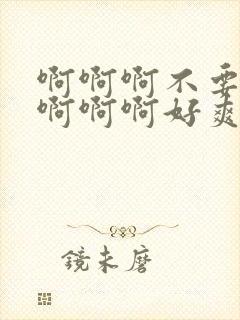 啊啊啊不要
啊啊啊好爽
鏡未磨